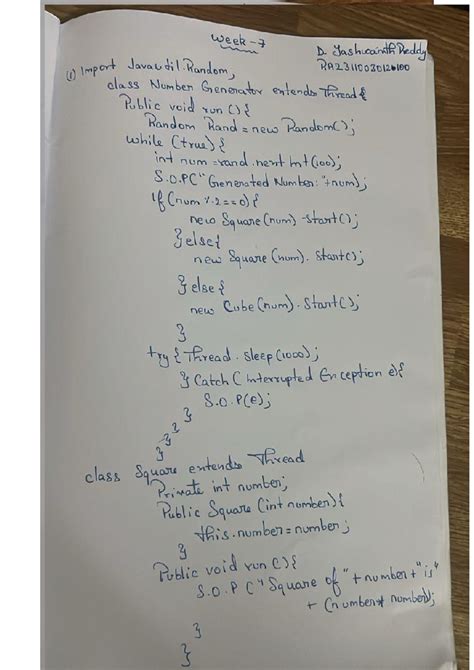 Week-7
D. Jashwanth Reddy
RA2311003012100
(1) Import Java.util.Random;
class Number Generator extends Thread {
Public void run () {
Random Rand = new Random();
while (true) {
int num = rand.next Int (100);
S.O.P(" Generated Number: "+num);
if (num % 2 == 0) {
new Square (num) .start();
} else {
new Square (num). Start();
} else {
new Cube (num). Start();
}
try { Thread. sleep (1000);
} Catch ( Interrupted Exception e) {
S.O.P(e);
}
}
}
}
class Square extends Thread
Private int number;
Public Square (int number) {
this.number = number;
}
Public void run () {
S.O.P ("Square of " + number + "is"
+ (number * number);
}
}